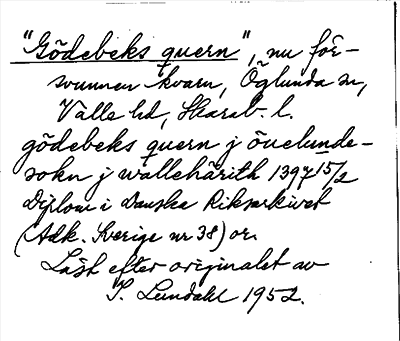 "Gödebeks quern", nu för-
svunnen kvarn, Öglunda sn,
Valle hd, Skarab. l.
gödebeks quern j övelunde-
sokn j wallehärith 1397 15/2
Diplom i Danska Riksarkivet
(Adk. Sverige nr 38) or.
Läst efter originalet av
I. Lundahl 1952.